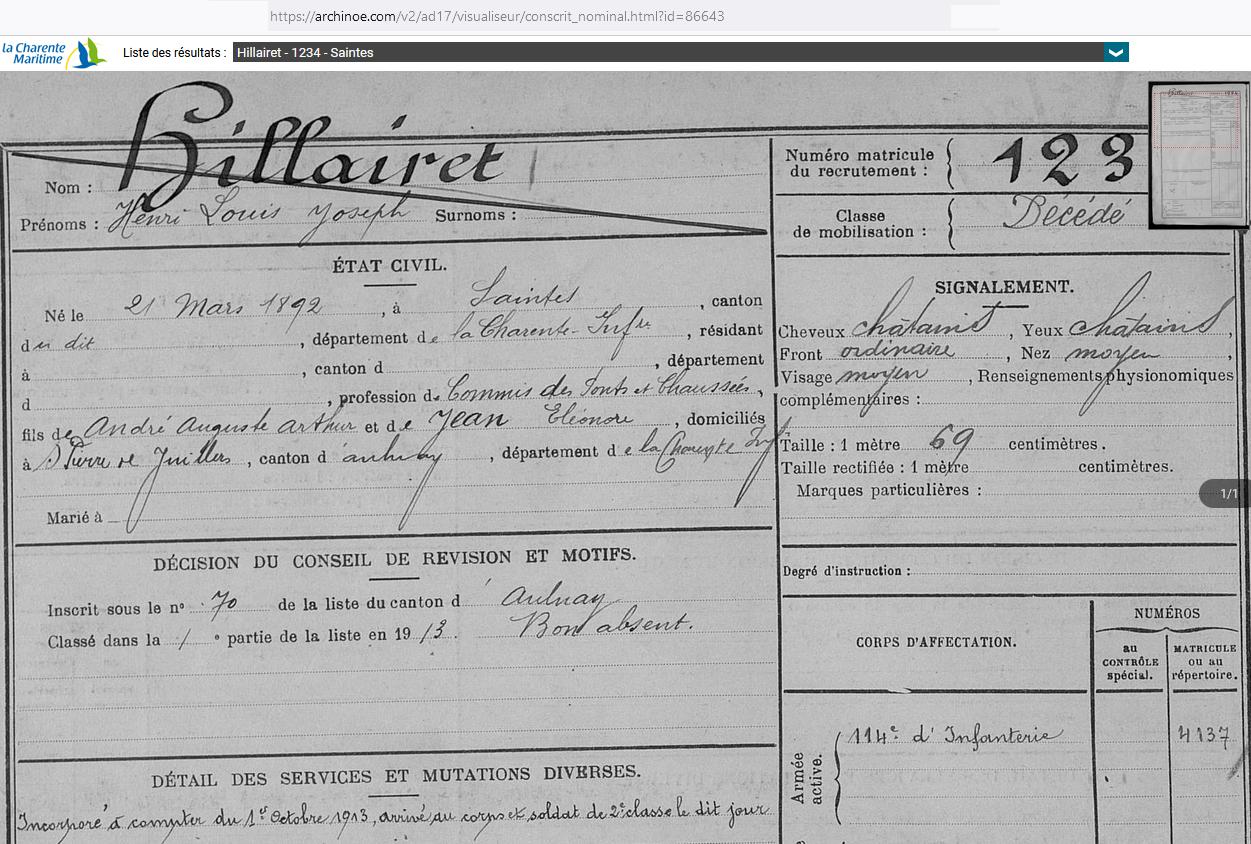 https://archinoe.com/v2/ad17/visualiseur/conscrit_nominal.html?id=86643
la Charente Maritime
Liste des résultats : Hillairet - 1234 - Saintes
Nom : Hillairet
Prénoms : Henri Louis Joseph Surnoms :
Numéro matricule du recrutement : 123
Classe de mobilisation : Décédé
ÉTAT CIVIL.
Né le 21 Mars 1892, à Saintes, canton
du dit, département de la Charente-Infre, résidant
à , canton d , département
d , profession de Commis des Ponts et Chaussées,
fils de André Auguste Arthur et de JEAN Eléonore, domiciliés
à St Pierre de Juillers, canton d'aulnay, département de la Charente Infre
Marié à
SIGNALEMENT.
Cheveux châtains, Yeux châtains,
Front ordinaire, Nez moyen,
Visage moyen, Renseignements physionomiques
complémentaires :
Taille : 1 mètre 69 centimètres.
Taille rectifiée : 1 mètre centimètres.
Marques particulières :
1/1
DÉCISION DU CONSEIL DE REVISION ET MOTIFS.
Inscrit sous le n° 70 de la liste du canton d Aulnay
Classé dans la 1° partie de la liste en 1913. Bon absent.
Degré d'instruction :
CORPS D'AFFECTATION.
NUMÉROS
au CONTRÔLE spécial.
MATRICULE ou au répertoire.
Armée active.
114e d'Infanterie
4137
DÉTAIL DES SERVICES ET MUTATIONS DIVERSES.
Incorporé à compter du 1er Octobre 1913, arrivé au corps et soldat de 2e classe le dit jour